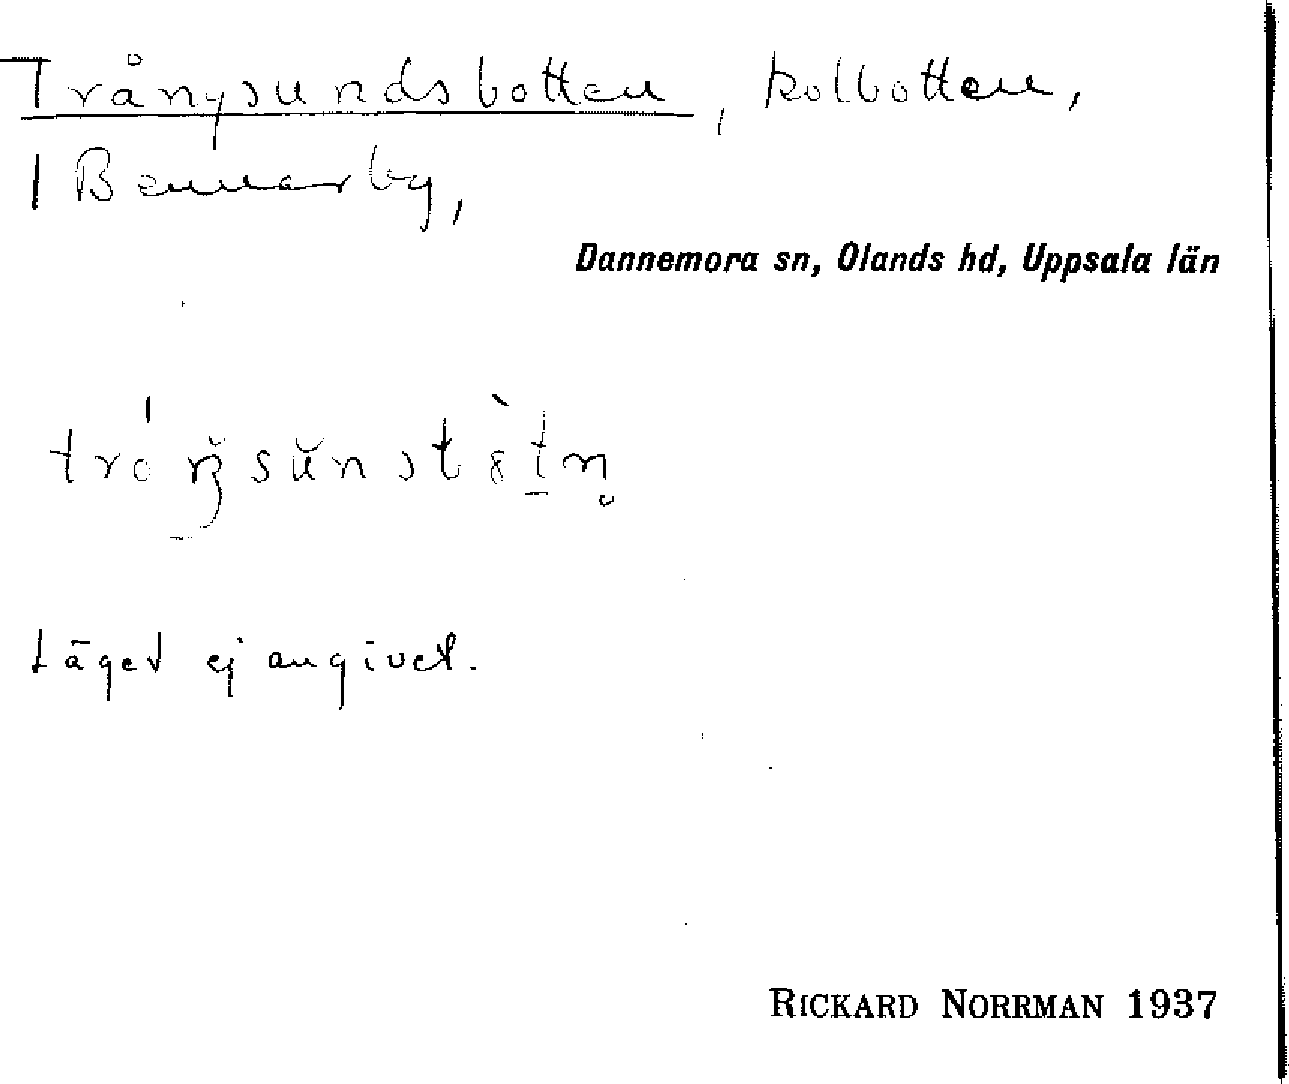 Trångsundsbotten, kolbotten,
Bennarby,
Dannemora sn, Olands hd, Uppsala län
Läget ej angivet.
RICKARD NORRMAN 1937